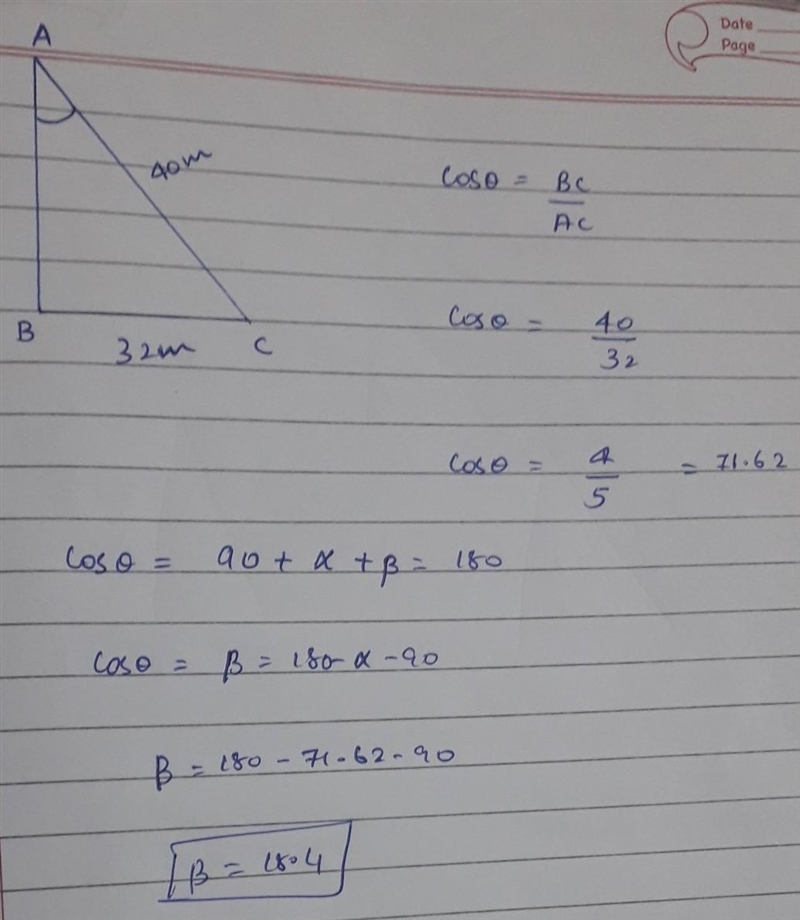 Date
Page
A
40m
B
32m
C
Cosθ = BC
AC
Cosθ = 40
32
Cosθ = 4 = 71.62
5
Cosθ = 90 + α + β = 180
Cosθ = β = 180 - α - 90
β = 180 - 71.62 - 90
β = 18.4